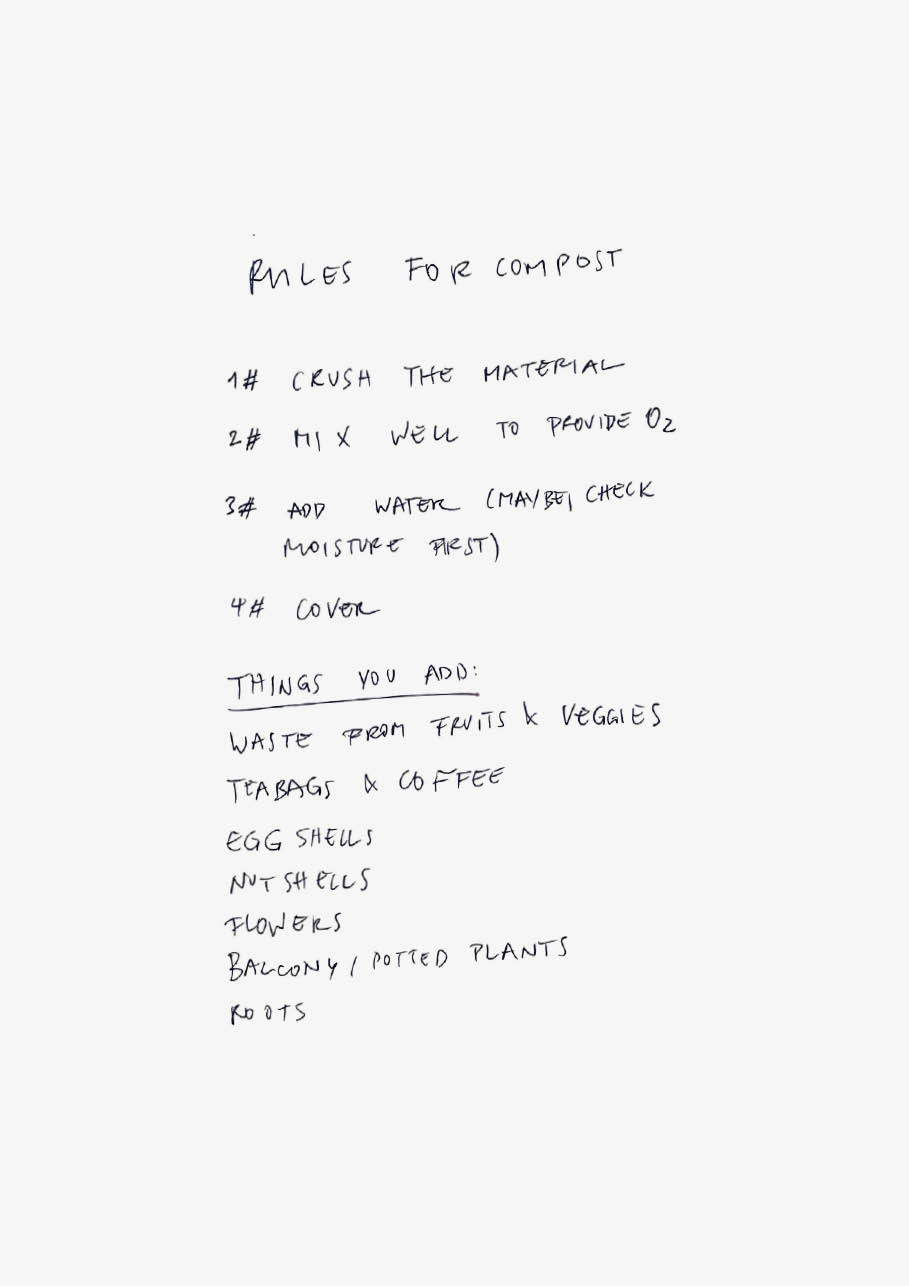 RULES FOR COMPOST
1# CRUSH THE MATERIAL
2# MIX WELL TO PROVIDE O2
3# ADD WATER (MAYBE, CHECK
MOISTURE FIRST)
4# COVER
THINGS YOU ADD:
WASTE FROM FRUITS & VEGGIES
TEABAGS & COFFEE
EGG SHELLS
NUT SHELLS
FLOWERS
BALCONY / POTTED PLANTS
ROOTS